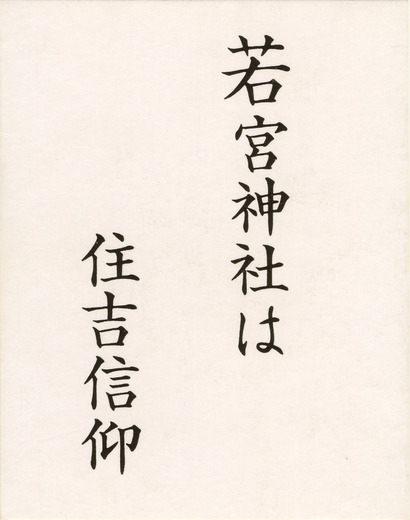 若宮神社は
住吉信仰